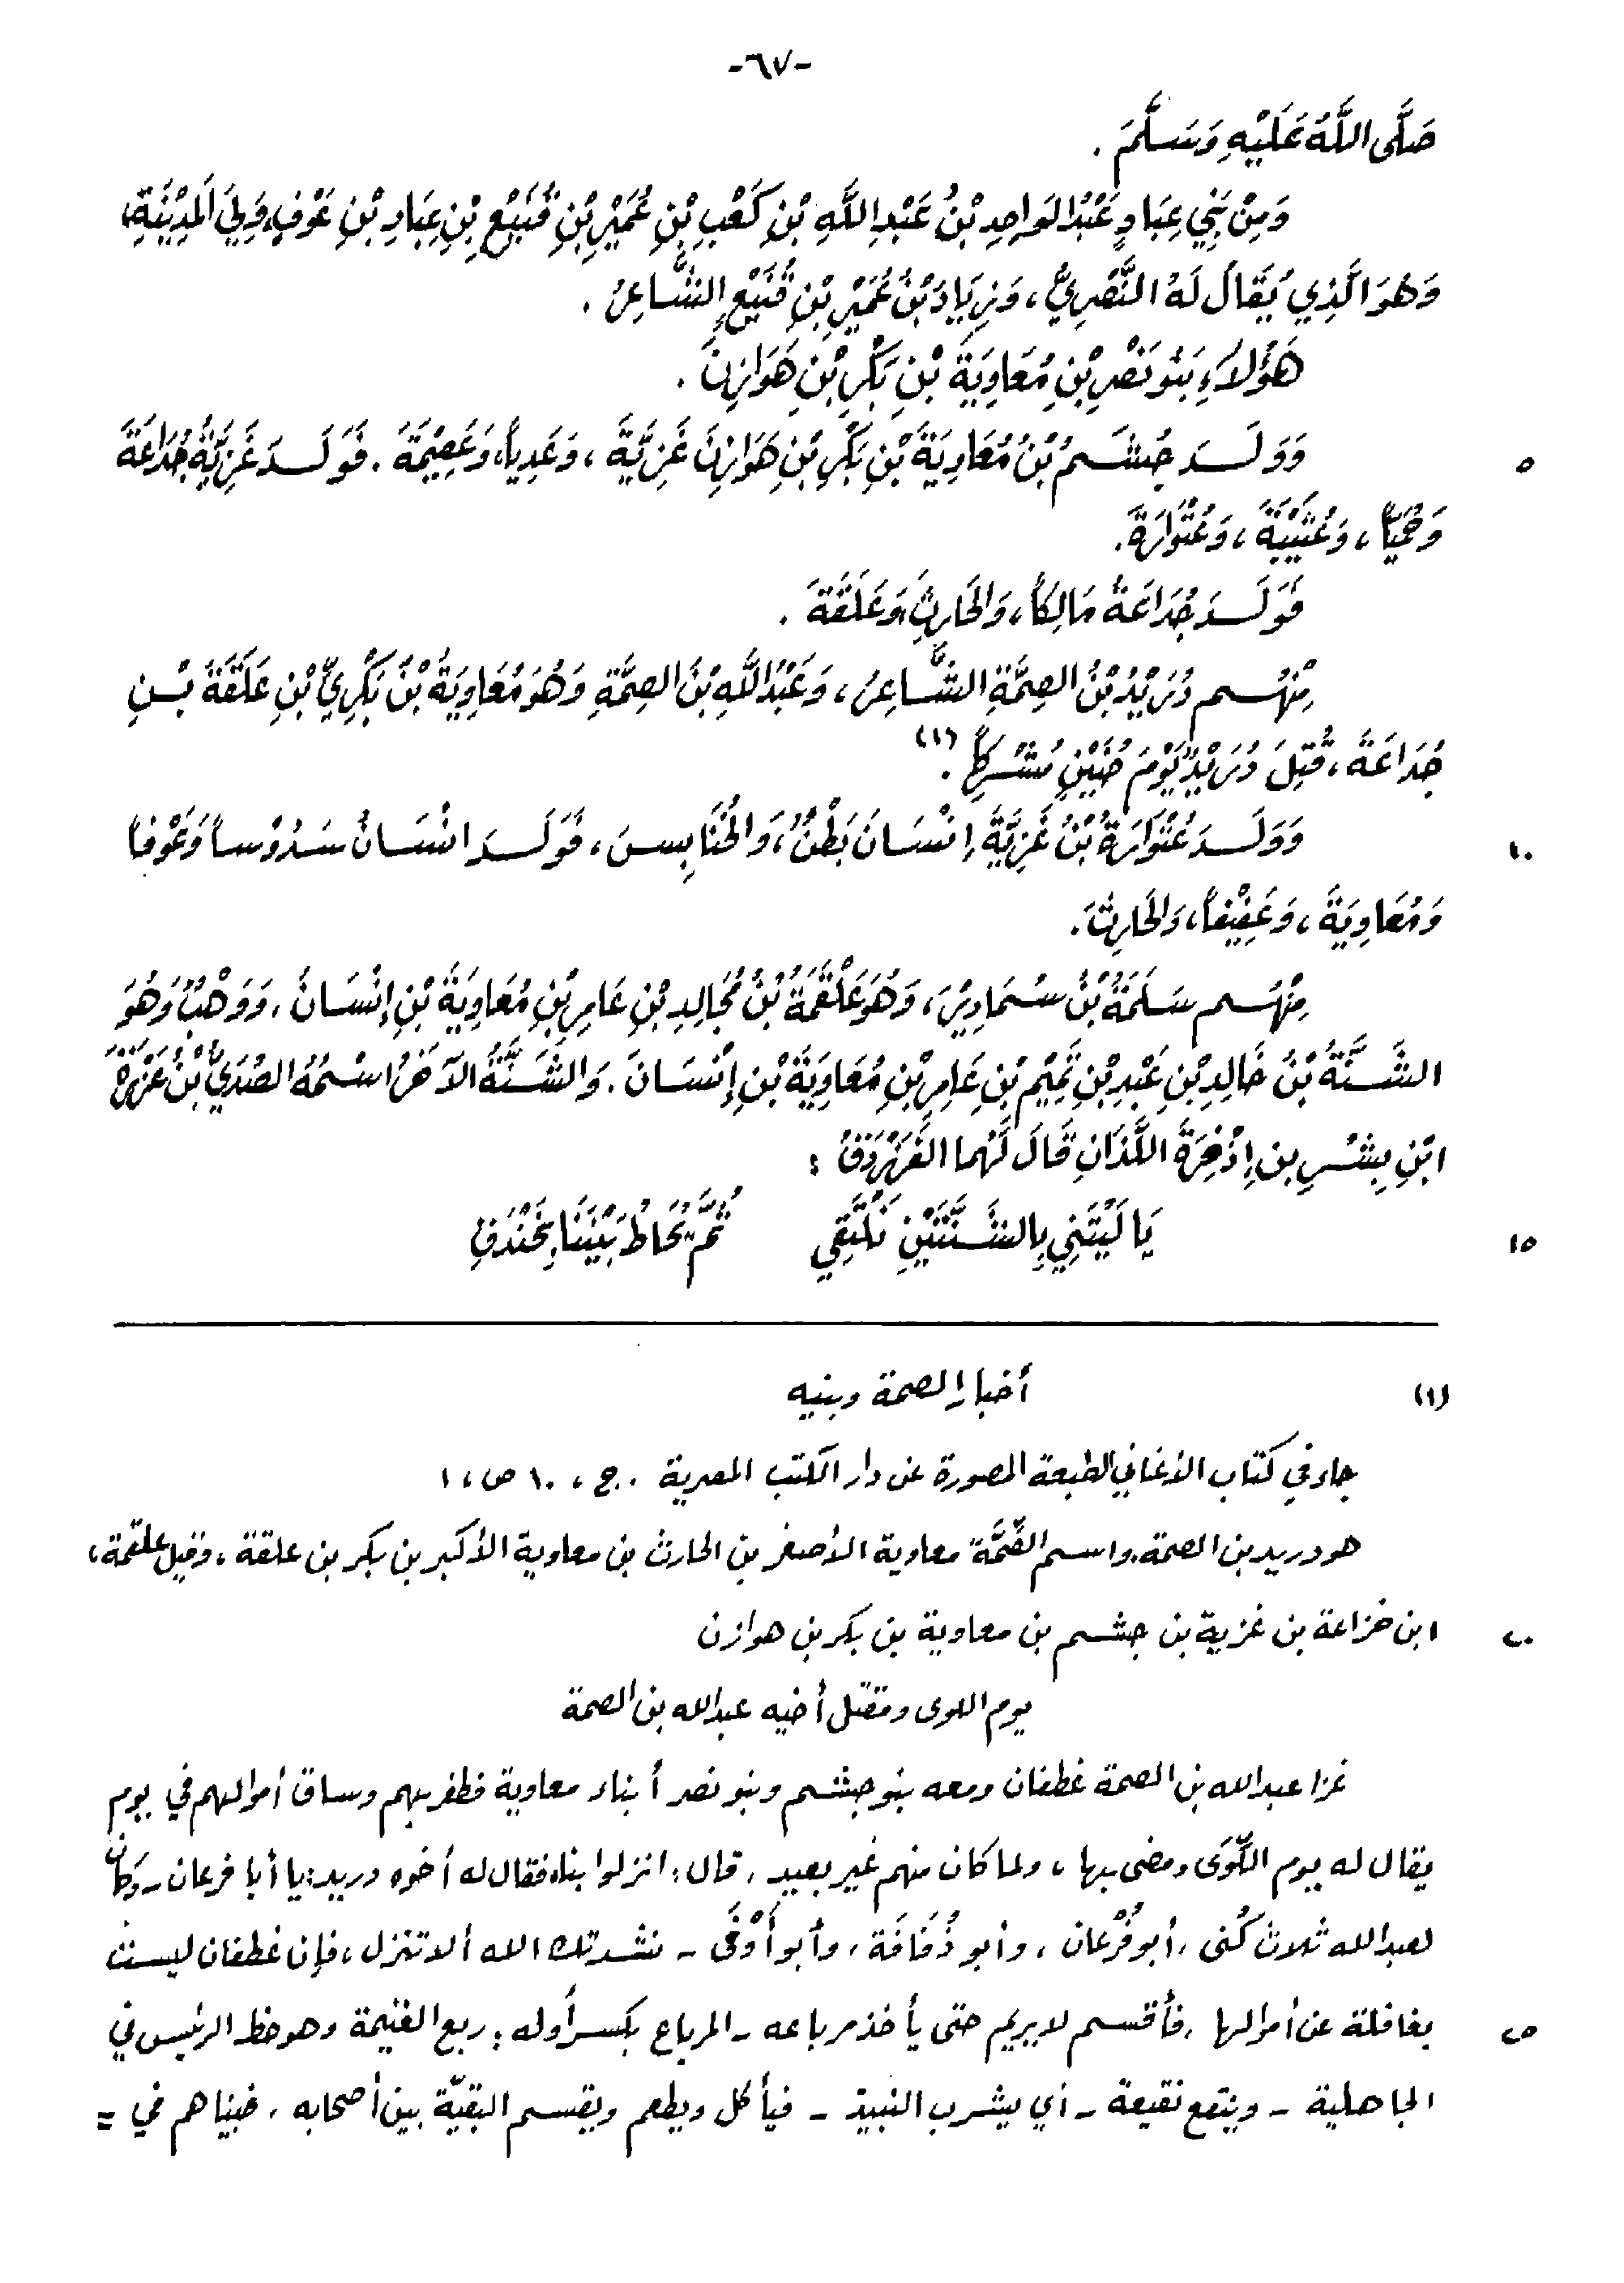 -٦٧-
صَلَّى اللَّهُ عَلَيْهِ وَسَلَّمَ .
وَمِنْ بَنِي عِبَادٍ عَبْدُ الوَاحِدِ بْنُ عَبْدِ اللَّهِ بْنِ كَعْبِ بْنِ عُمَيْرِ بْنِ قُنَيْعِ بْنِ عِبَادِ بْنِ عَوْفٍ، وَلِيَ المَدِيْنَةِ،
وَهُوَ الَّذِي يُقَالُ لَهُ النَّصْرِيُّ، وَزِيَادُ بْنُ عُمَيْرِ بْنِ قُنَيْعٍ الشَّاعِرُ .
هَؤُلاَءِ بَنُو نَصْرِ بْنِ مُعَاوِيَةَ بْنِ بَكْرِ بْنِ هَوَازِنَ .
٥ وَوَلَـدَ جُشَـمُ بْنُ مُعَاوِيَةَ بْنِ بَكْرِ بْنِ هَوَازِنَ غَزِيَّةَ، وَعَدِيّاً، وَعَصِيْمَةَ . فَوَلَـدَ غَزِيَّةُ جُدَاعَةَ
وَحُمَيّاً، وَعُتَيْبَةَ، وَعُتْوَارَةَ.
فَوَلَـدَ جُدَاعَةُ مَالِكاً، وَالحَارِثَ، وَعَلَقَةَ .
مِنْهُـم دُرَيْدُ بْنُ الصِمَّةِ الشَّاعِرُ، وَعَبْدُ اللَّهِ بْنُ الصِمَّةِ وَهُوَ مُعَاوِيَةُ بْنُ بَكْرِيِّ بْنِ عَلَقَةَ بْـنِ
جُدَاعَةَ، قُتِلَ دُرَيْدٌ يَوْمَ حُنَيْنٍ مُشْرِكاً . (١)
١٠ وَوَلَـدَ عُتْوَارَةُ بْنُ غَزِيَّةَ إِنْسَانَ بَطْنٌ، وَالخُنَابِسَ، فَوَلَـدَ انْسَانُ سَدُوْساً وَعَوْفاً
وَمُعَاوِيَةَ، وَعَفِيْفاً، وَالحَارِثَ.
مِنْهُـم سَلَمَةُ بْنُ سُمَادِيْرَ، وَهُوَ عَلْقَمَةُ بْنُ مُجَالِدِ بْنِ عَامِرِ بْنِ مُعَاوِيَةَ بْنِ إِنْسَانَ، وَوَهْبٌ وَهُوَ
الشَّنَّةُ بْنُ خَالِدِ بْنِ عَبْدِ بْنِ تَمِيْمِ بْنِ عَامِرِ بْنِ مُعَاوِيَةَ بْنِ إِنْسَانَ . وَالشَّنَّةُ الآخَرُ اسْمُهُ الصُدَيُّ بْنُ عَزْرَةَ
ابْنِ بِشْـرِ بن إِذْخِرَةَ اللَّذَانِ قَالَ لَهُما الفَرَزْدَقُ :
١٥ يَا لَيْتَنِي بِالشَّنَّتَيْنِ نَلْتَقِي ثُمَّ يُحَاطُ بَيْنَنَا بِخَنْدَقِ
(١) أخبار الصمة وبنيه
جاء في كتاب الأغاني الطبعة المصورة عن دار الكتب المصرية . ج ، ١٠ ص ، ١
هو دريد بن الصمة. واسم الصِّمَّة معاوية الأصغر بن الحارث بن معاوية الأكبر بن بكر بن علقة ، وقيل علقمة،
٢٠ ابن خزاعة بن غزية بن جشـم بن معاوية بن بكر بن هوازن
يوم اللوى ومقتل أخيه عبدالله بن الصمة
غزا عبدالله بن الصمة غطفان ومعه بنو جشم وبنو نصر أبناء معاوية فظفر بهم وساق أموالهم في يوم
يقال له يوم اللِّوَى ومضى بها ، ولما كان منهم غير بعيد ، قال: انزلوا بنا، فقال له أخوه دريد: يا أبا فرعان - وكان
لعبدالله ثلاث كُنى ، أبو فُرْعان ، وأبو ذُفَافَة ، وأبو أَوْفَى - نشدتك الله ألا تنزل ، فإن غطفان ليست
٢٥ بغافلة عن أموالها ، فأقسم لا يريم حتى يأخذ مرباعه - المرباع بكسر أوله : ربع الغنيمة وهو حظ الرئيس في
الجاهلية - وينقع نقيعة - أي يشرب النبيذ - فيأكل ويطعم ويقسم البقيّة بين أصحابه ، فبينا هم في =